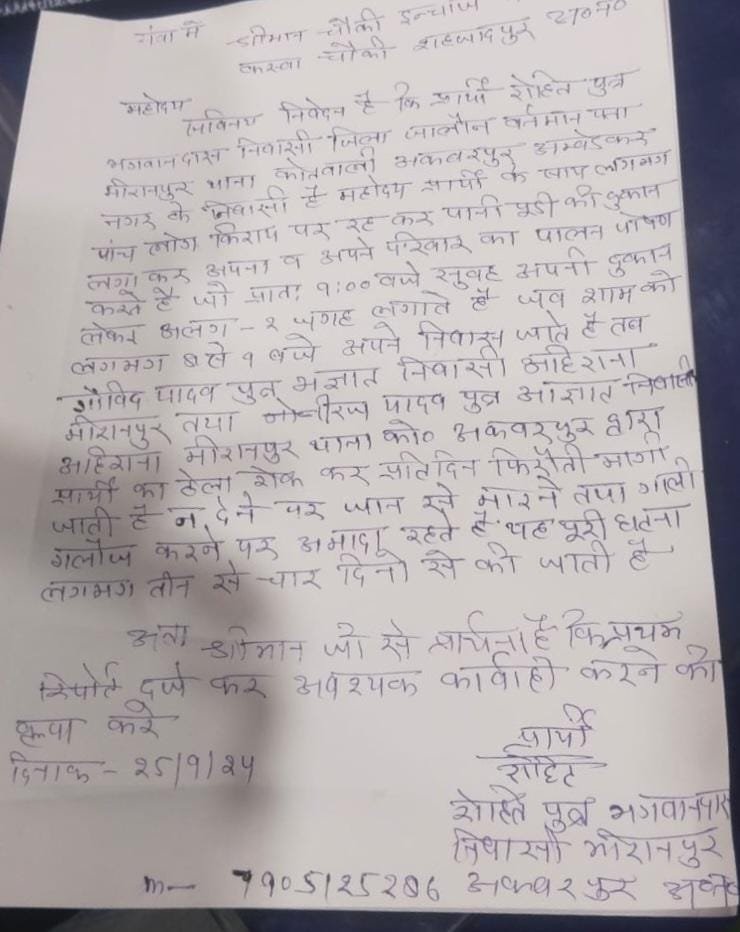 सेवा में
श्रीमान चौकी इन्चार्ज
कस्बा चौकी शहजादपुर
महोदय
सविनय निवेदन है कि प्रार्थी रोहित पुत्र
भगवानदास निवासी जिला जालौन वर्तमान पता
मीरानपुर थाना कोतवाली अकबरपुर अम्बेडकर
नगर के निवासी है महोदय प्रार्थी के साथ लगभग
पांच लोग किराए पर रह कर पानी पूडी की दुकान
लगा कर अपना व अपने परिवार का पालन पोषण
करते है जो प्रातः 9:00 बजे सुबह अपनी दुकान
लेकर अलग-२ जगह लगाते है जब शाम को
लगभग 8 से 9 बजे अपने निवास जाते है तब
गोविंद यादव पुत्र अज्ञात निवासी अहिराना
मीरानपुर तथा यादव पुत्र अज्ञात निवासी
अहिराना मीरानपुर थाना को० अकबरपुर द्वारा
प्रार्थी का ठेला रोक कर प्रतिदिन फिरौती मागी
जाती है न देने पर जान से मारने तथा गाली
गलौज करने पर अमादा रहते है यह पूरी घटना
लगभग तीन से चार दिनो से की जाती है
अतः श्रीमान जी से प्रार्थना है कि प्रथम
रिपोर्ट दर्ज कर अवश्यक कार्वाही करने की
कृपा करे
दिनाक - २5/9/२4
प्रार्थी
रोहित
रोहित पुत्र भगवानदास
निवासी मीरानपुर
अकबरपुर
m- 7905125286